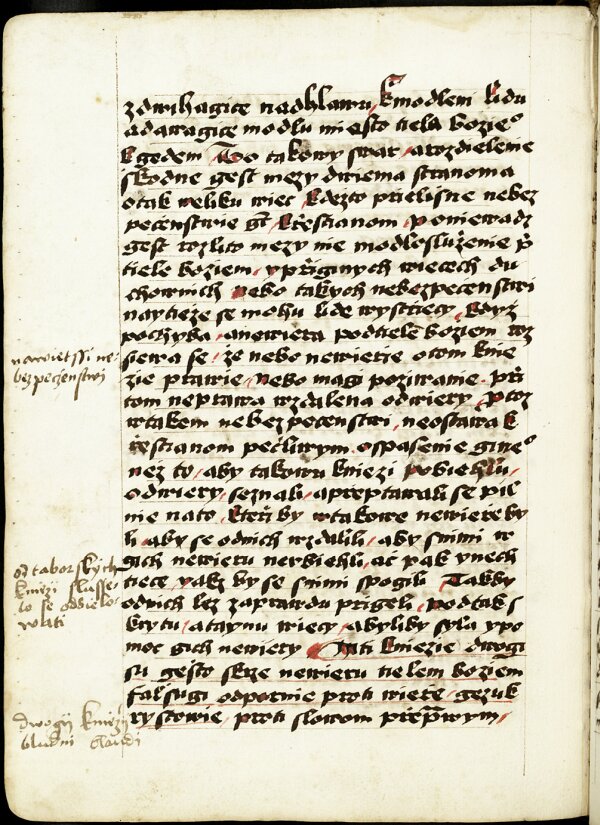 zdwihagice nadhlawu / kmodleni lidu
adawagice modlu miesto tiela bozie°
Kgedem Too takowy swar / arozdielenie
skodne gest mezy dwiema stranoma
otak weliku wiec / Kdezto przielisne nebez
peczenstwie gt / Krzestianom / Poniewadz
gest rozlito mezy nie modlosluzenie przi
tiele boziem / yprziginych wiecech du
chownich / Nebo takych nebezpecenstwi
naytieze se mohu lide wystrziecy / Kdyz
pochyba / anewiera podtiele boziem wz
siewa se / ze nebo newierzie otom knie
zie prawie / Nebo magi poziwanie przi
tom neprawa wzdalena odwiery / Protoz
wtakem nebezpecenstwi / neostawa k
rzestianom peczliwym ospasenie gine°
nez to / aby takowu kniezi pobiehlu /
odwiery / seznali / aprzeptawali se pil
nie nato / Kterzi by wtakowe newierze by
li / aby se odnich wzdalili / aby snimi w
gich newieru nezbiehli / acz pak ynech
tiece yakz by se snimi spogili Takby
odnich lez zaprawdu przigeli / podtak s
krytu / ataynu wiecy / abyliby syla ypo
moc gich newiery Tiiti kniezie dwogi
su gesto skrze newieru tielem boziem
falsugi odpornie proti wierze / gezuk
rystowie / proti slowom przeprawym /
nawietssi ne-
bezpeczenstwi
od taborskych
kniezi slusse-
lo se oddielo-
wati
dwogij kniezij
bludni